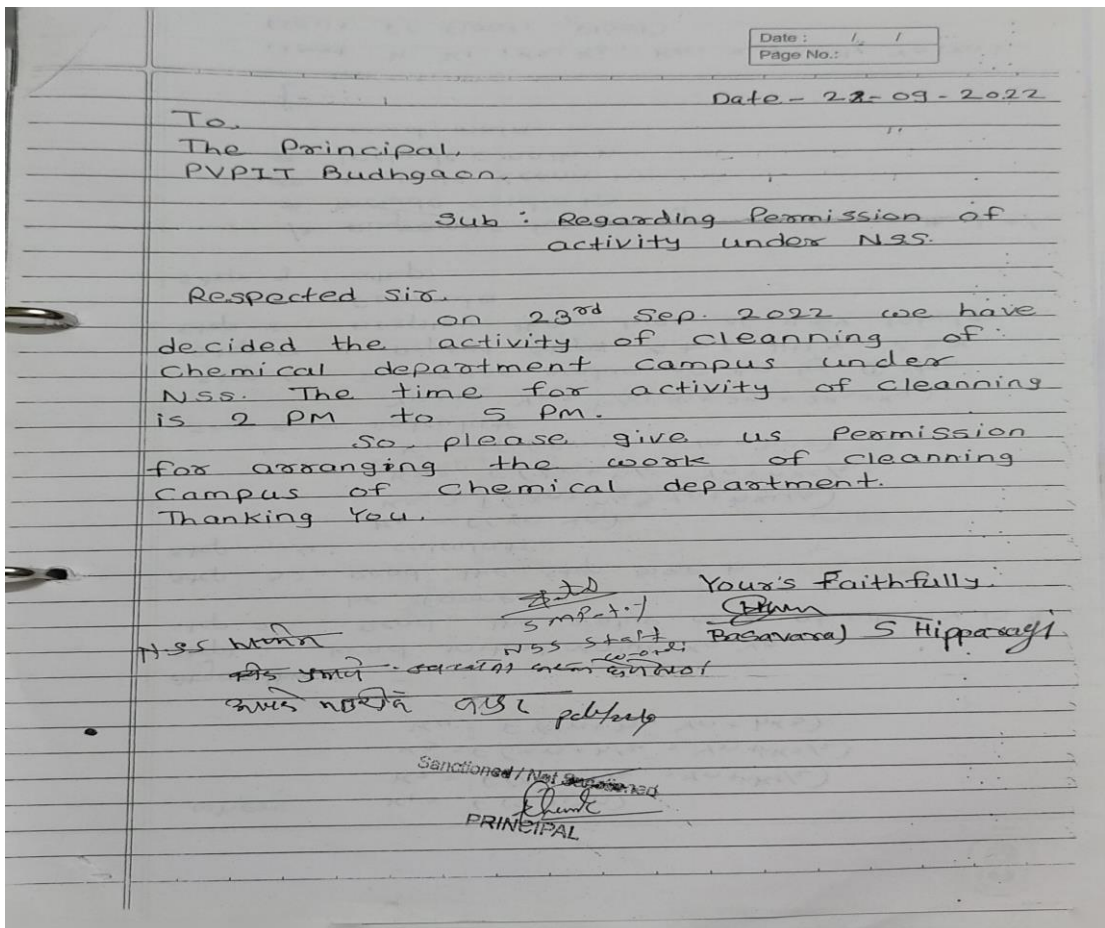 Date : / /
Page No.:
Date - 22-09-2022
To,
The Principal,
PVPIT Budhgaon.
Sub : Regarding Permission of
activity under NSS.
Respected sir.
on 23rd Sep. 2022 we have
decided the activity of cleanning of
Chemical department campus under
NSS. The time for activity of cleanning
is 2 PM to 5 PM.
So, please give us Permission
for arranging the work of cleanning
Campus of Chemical department.
Thanking You.
Your's Faithfully.
NSS staff Basavaraj S Hipparagi
NSS
Sanctioned / Not Sanctioned
PRINCIPAL